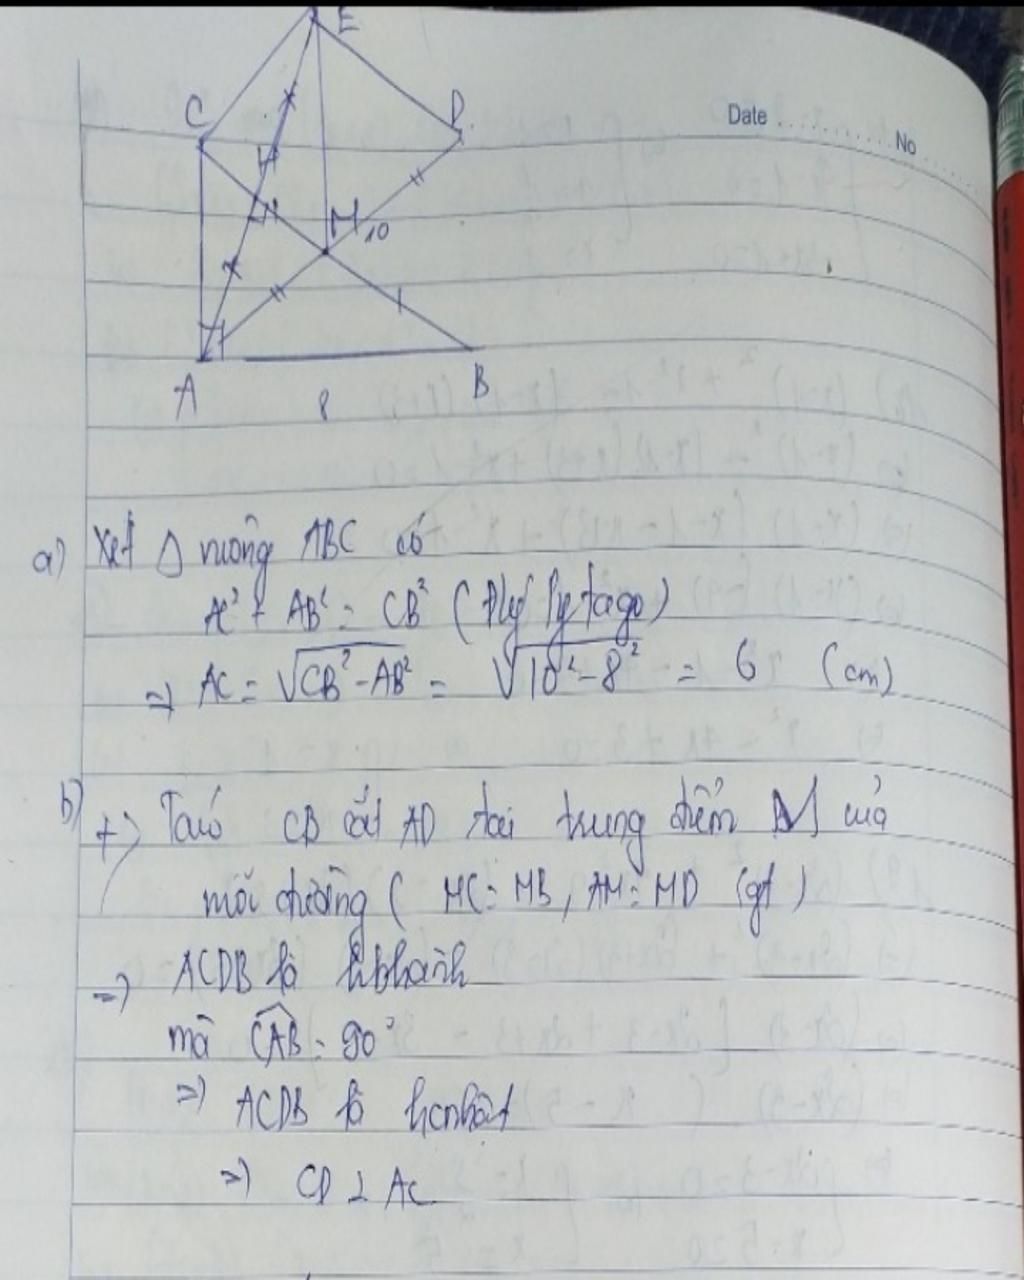 E
C
D
Date
No
H
M
10
A
8
B
a) Xét Δ vuông ABC có
AC² + AB² = CB² (Đlý Pytago)
=> AC = √CB² - AB² = √10² - 8² = 6 (cm)
b) +) Ta có CB cắt AD tại trung điểm M của
mỗi đường ( MC = MB, AM = MD (gt)
=> ACDB là hbhành
mà CAB = 90°
=> ACDB là hcnhật
=> CD ⊥ AC